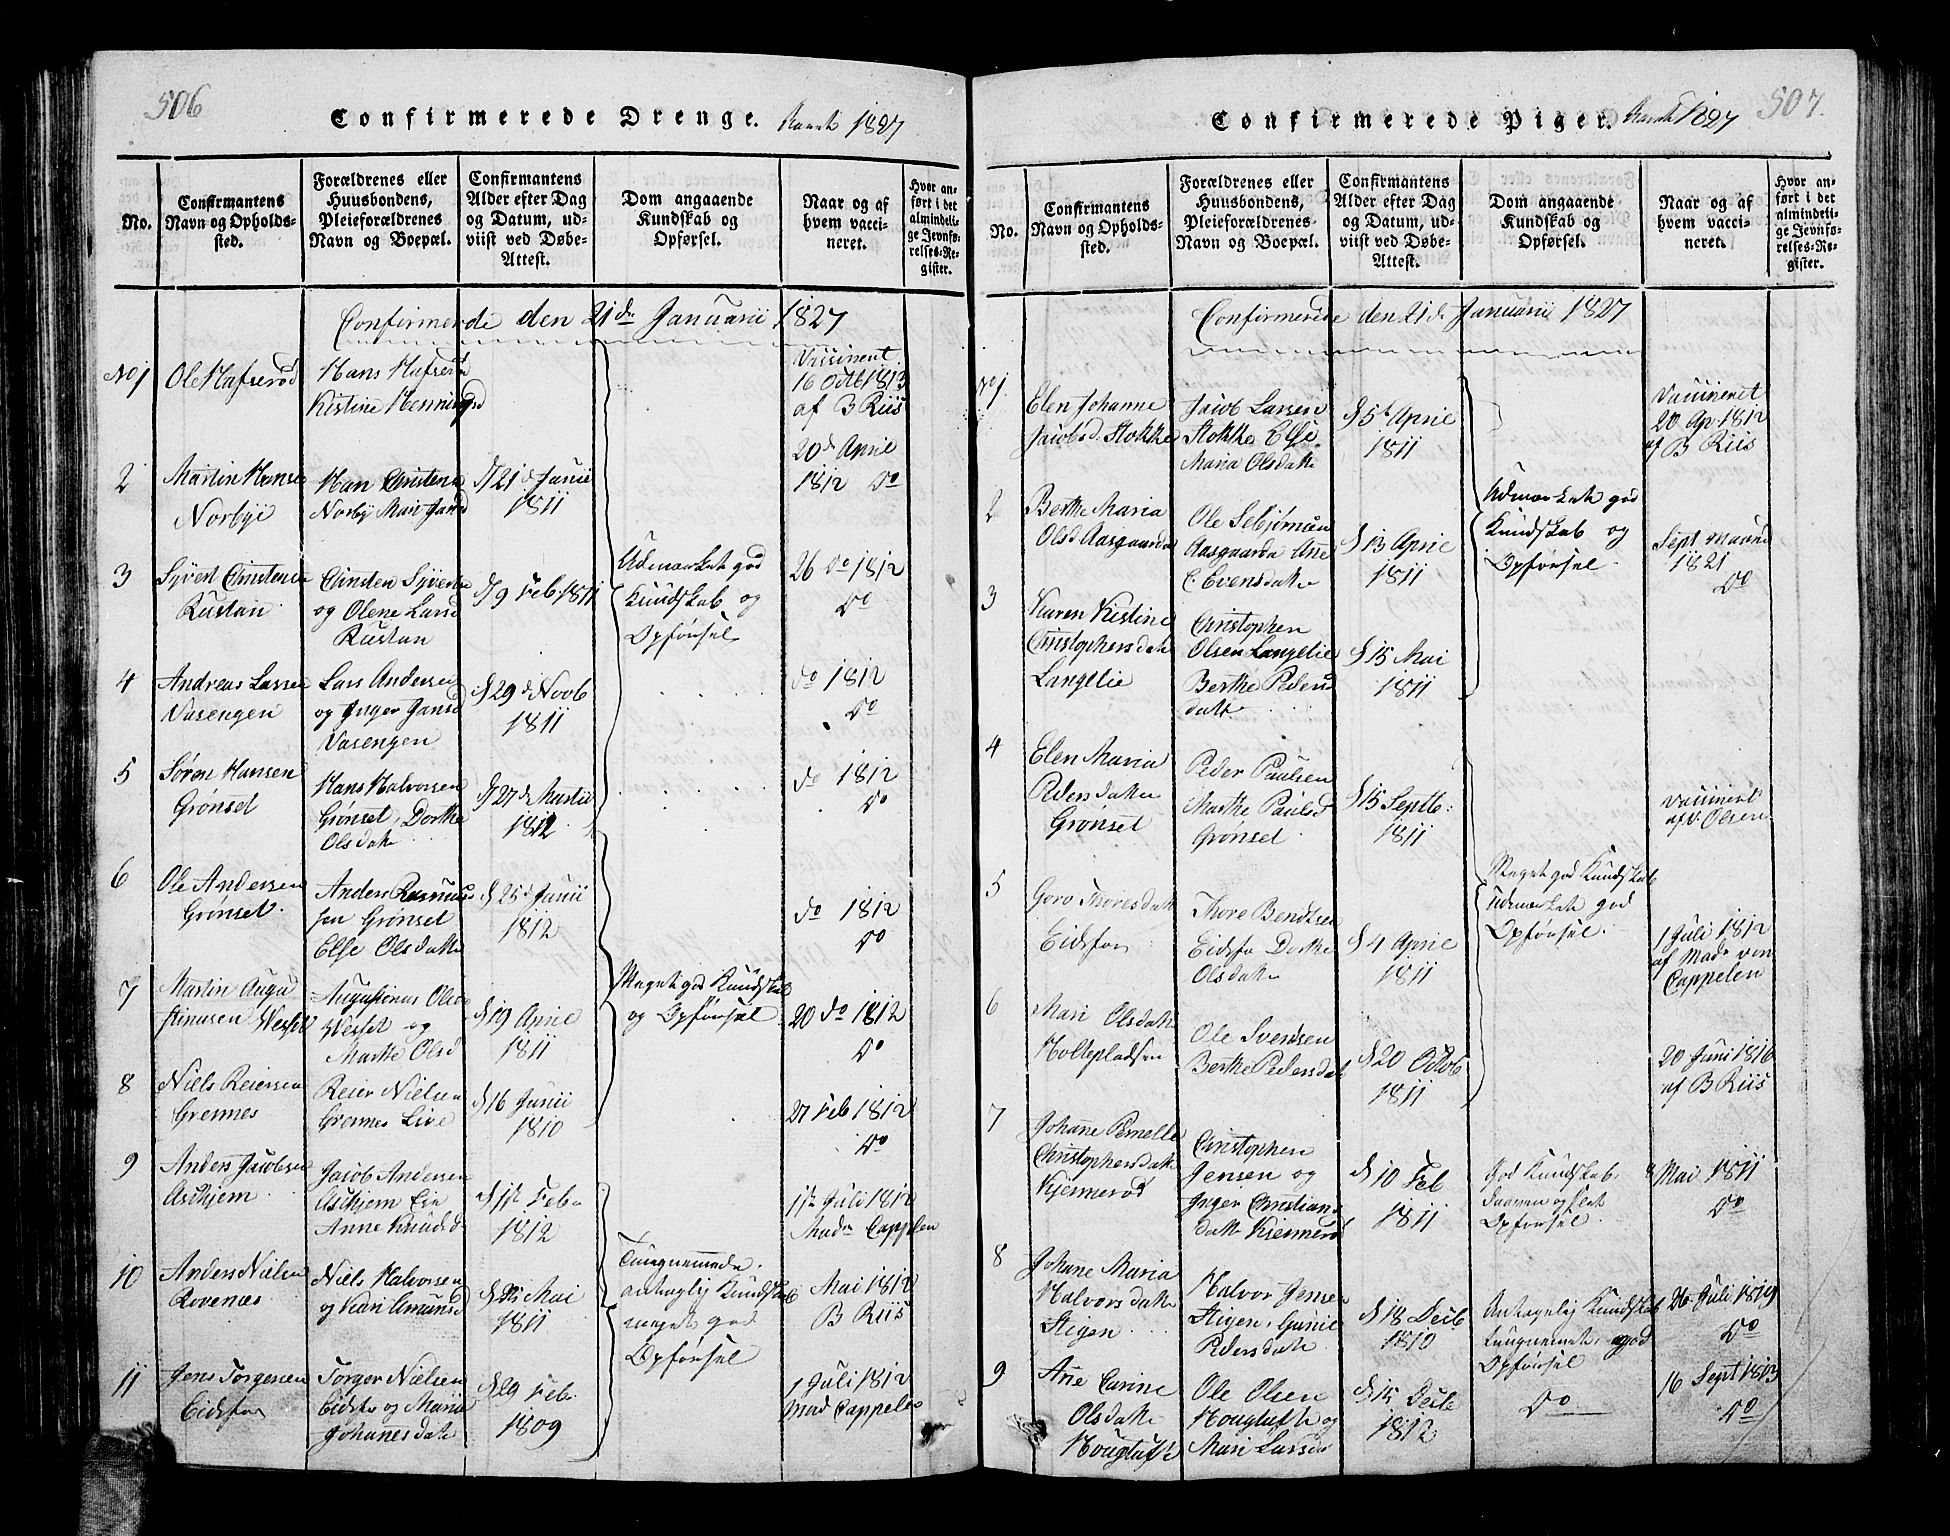 506
Confirmerede Drenge.
1827
No.
Confirmantens
Navn og Opholds-
sted.
Forældrenes eller
Huusbondens,
Pleieforældrenes
Navn og Boepæl.
Confirmantens
Alder efter Dag
og Datum, ud-
viist ved Døbe-
Attest.
Dom angaaende
Kundskab og
Opførsel.
Naar og af
hvem vacci-
neret.
Hvor an-
ført i det
almindeli-
ge Jevnfø-
relses-Re-
gister.
Confirmerede den 21de Januarii 1827
No 1
Ole Hafserød
Hans Hafserød
Kistine Henningsd
Vaccineret
16 Octb 1813
af B Riis
2
Martin Hansen
Norbye
Hans Christensen
Norby Mari Jansd
d 21 d Junii
1811
20 d April
1812 do
3
Syvert Christensen
Rustan
Christen Syversen
og Olene Larsd
Rustan
d 9 Feb 1811
Udmærket god
Kundskab og
Opførsel
26 do 1812
do
4
Andreas Larsen
Vasengen
Lars Andersen
og Inger Jansd
Vasengen
d 29 d Novb
1811
do 1812
do
5
Søren Hansen
Grønset
Hans Halvorsen
Grønset, Dorthe
Olsdatter
d 27 d Martii
1812
do 1812
do
6
Ole Andersen
Grønset
Anders Rasmus
sen Grønset
Else Olsdatter
d 25 d Junii
1812
do 1812
do
7
Martin Augu
stinusen
Augustinus Olsen
og
Marthe Olsd
d 19 April
1811
Meget god Kundskab
og Opførsel
20 do 1812
do
8
Niels Reiersen
Grennes
Reier Nielsen
Grennes Live
d 16 Junii
1810
27 Feb 1812
do
9
Anders Jacobsen
Askjem
Jacob Andersen
Askjem
Anne Knudsd
d 1ste Feb
1812
1ste Juli 1812
Mad Cappelen
10
Anders Nielsen
Rovenæs
Niels Halvorsen
og Kari Amundsd
Mai
1811
Tungnemmede
antagelig Kundskab
meget god
Opførsel
Mai 1812
B Riis
11
Jens Torgersen
Eidsfos
Torger Nielsen
Eidsfos og Maria
Johannesdatter
d 29 Feb
1809
1 Juli 1812
Mad Cappelen
507.
Confirmerede Piger.
1827
No.
Confirmantens
Navn og Opholds-
sted.
Forældrenes eller
Huusbondens,
Pleieforældrenes
Navn og Boepæl.
Confirmantens
Alder efter Dag
og Datum, ud-
viist ved Døbe-
Attest.
Dom angaaende
Kundskab og
Opførsel.
Naar og af
hvem vacci-
neret.
Hvor an-
ført i det
almindeli-
ge Jevnfø-
relses-Re-
gister.
Confirmerede den 21 de Januarii 1827
No 1
Elen Johanne
Jacobsd. Stokke
Jacob Larsen
Stokke Else
Maria Olsdatter
d 5t April
1811
Vaccineret
20 Ap 1812
af B Riis
2
Berthe Maria
Olsd Aasgaarden
Ole
Aasgaarden Anne
Evensdatter
d 13 April
1811
Udmærket god
Kundskab og
Opførsel
Sept
1821
do
3
Karen Kistine
Christophersdatter
Langelie
Christopher
Olsen Langelie
Berthe Peders
datter
d 15 Mai
1811
4
Elen Maria
Pedersdatter
Grønset
Peder Paulsen
Marthe Paulsd
Grønset
d 15 Septb
1811
Vaccineret
af Olsen
5
Goro Thoresdatter
Eidsfos
Thore Bendtsen
Eidsfos Dorthe
Olsdatter
d 4 April
1811
Meget god Kundskab
Udmærket god
Opførsel
1 Juli 1812
af Mad von
Cappelen
6
Mari Olsdatter
Holtepladsen
Ole Svendsen
Berthe Pedersdat
d 20 Octob
1811
20 Juni 1816
af B Riis
7
Johane Pernelle
Christophersdatter
Kjennerød
Christopher
Jensen og
Inger Christians
datter Kjennerød
d 10 Feb
1811
God Kundskab
Opførsel
8 Mai 1811
do
8
Johane Maria
Halvorsdatter
Stigen
Halvor Jensen
Stigen, Gunild
Pedersdatter
d 18 Decb
1810
Antagelig Kundskab
Tungnemmet, god
Opførsel
26 Juli 1819
do
9
Ane Carine
Olsdatter
Hougtuft
Ole Olsen
Hougtuft og
Mari Larsd
d 15 Decb
1812
do
16 Sept 1813
do